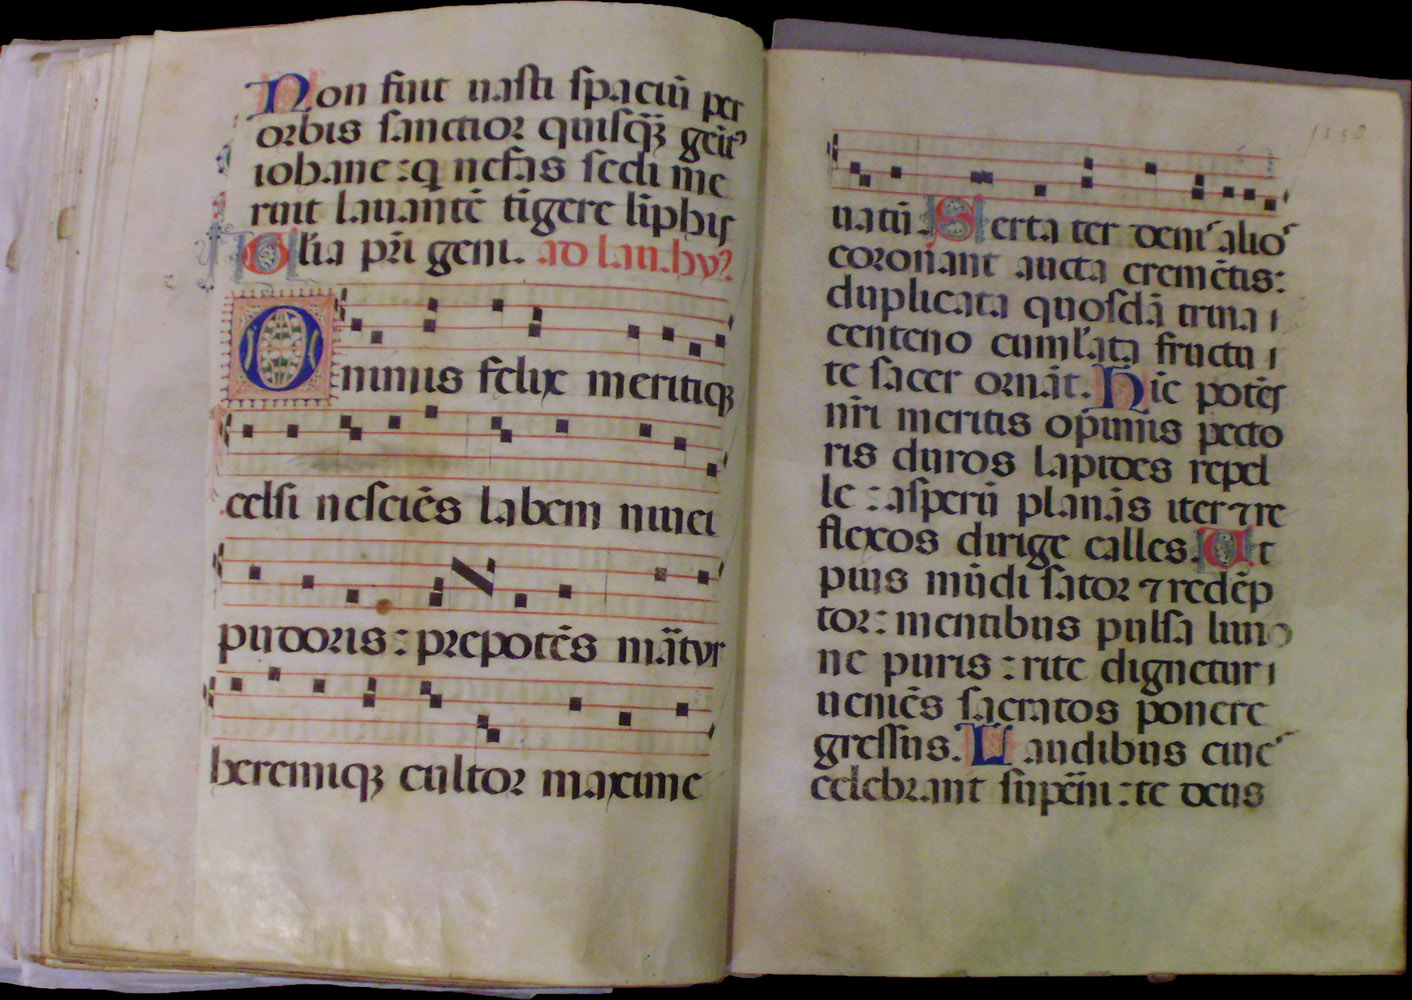 Non fuit uasti spaciū per
orbis sanctior quisq̄ꝫ geīt⁹
iohane : q nefās secli me
ruit lauantē tīgere līphis
Glīa pr̄i geni. ad lau. hy?
O nimis felix meritiqꝫ
celsi nesciēs labem niuei
pudoris : prepotēs mārtyr
heremiqꝫ cultor maxime
uatū. Serta ter deniˢ alioˢ
coronant aucta cremētis :
duplicata quosdā trina i
centeno cumlata fructu i
te sacer ornāt. Nūc potēs
nr̄i meritis opimis pecto
ris duros lapides repel
le : asperū planās iter ⁊ re
flexos dirige calles. Ut
pius mūdi sator ⁊ redēp
tor : mentibus pulsa liuio
ne puris : rite dignetur i
ueniēs sacratos ponere
gressus. Laudibus ciueˢ
celebrant supēni : te deus